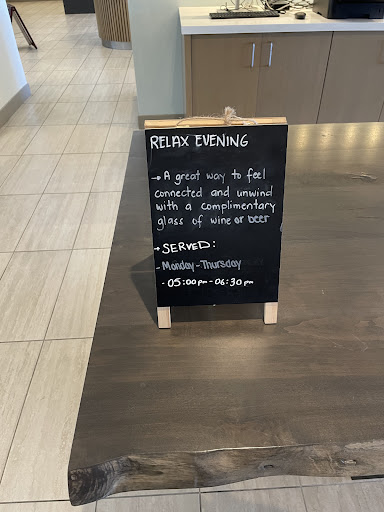 RELAX EVENING
→ A great way to feel
connected and unwind
with a complimentary
glass of wine or beer
→ SERVED:
- Monday - Thursday
- 05:00 pm - 06:30 pm